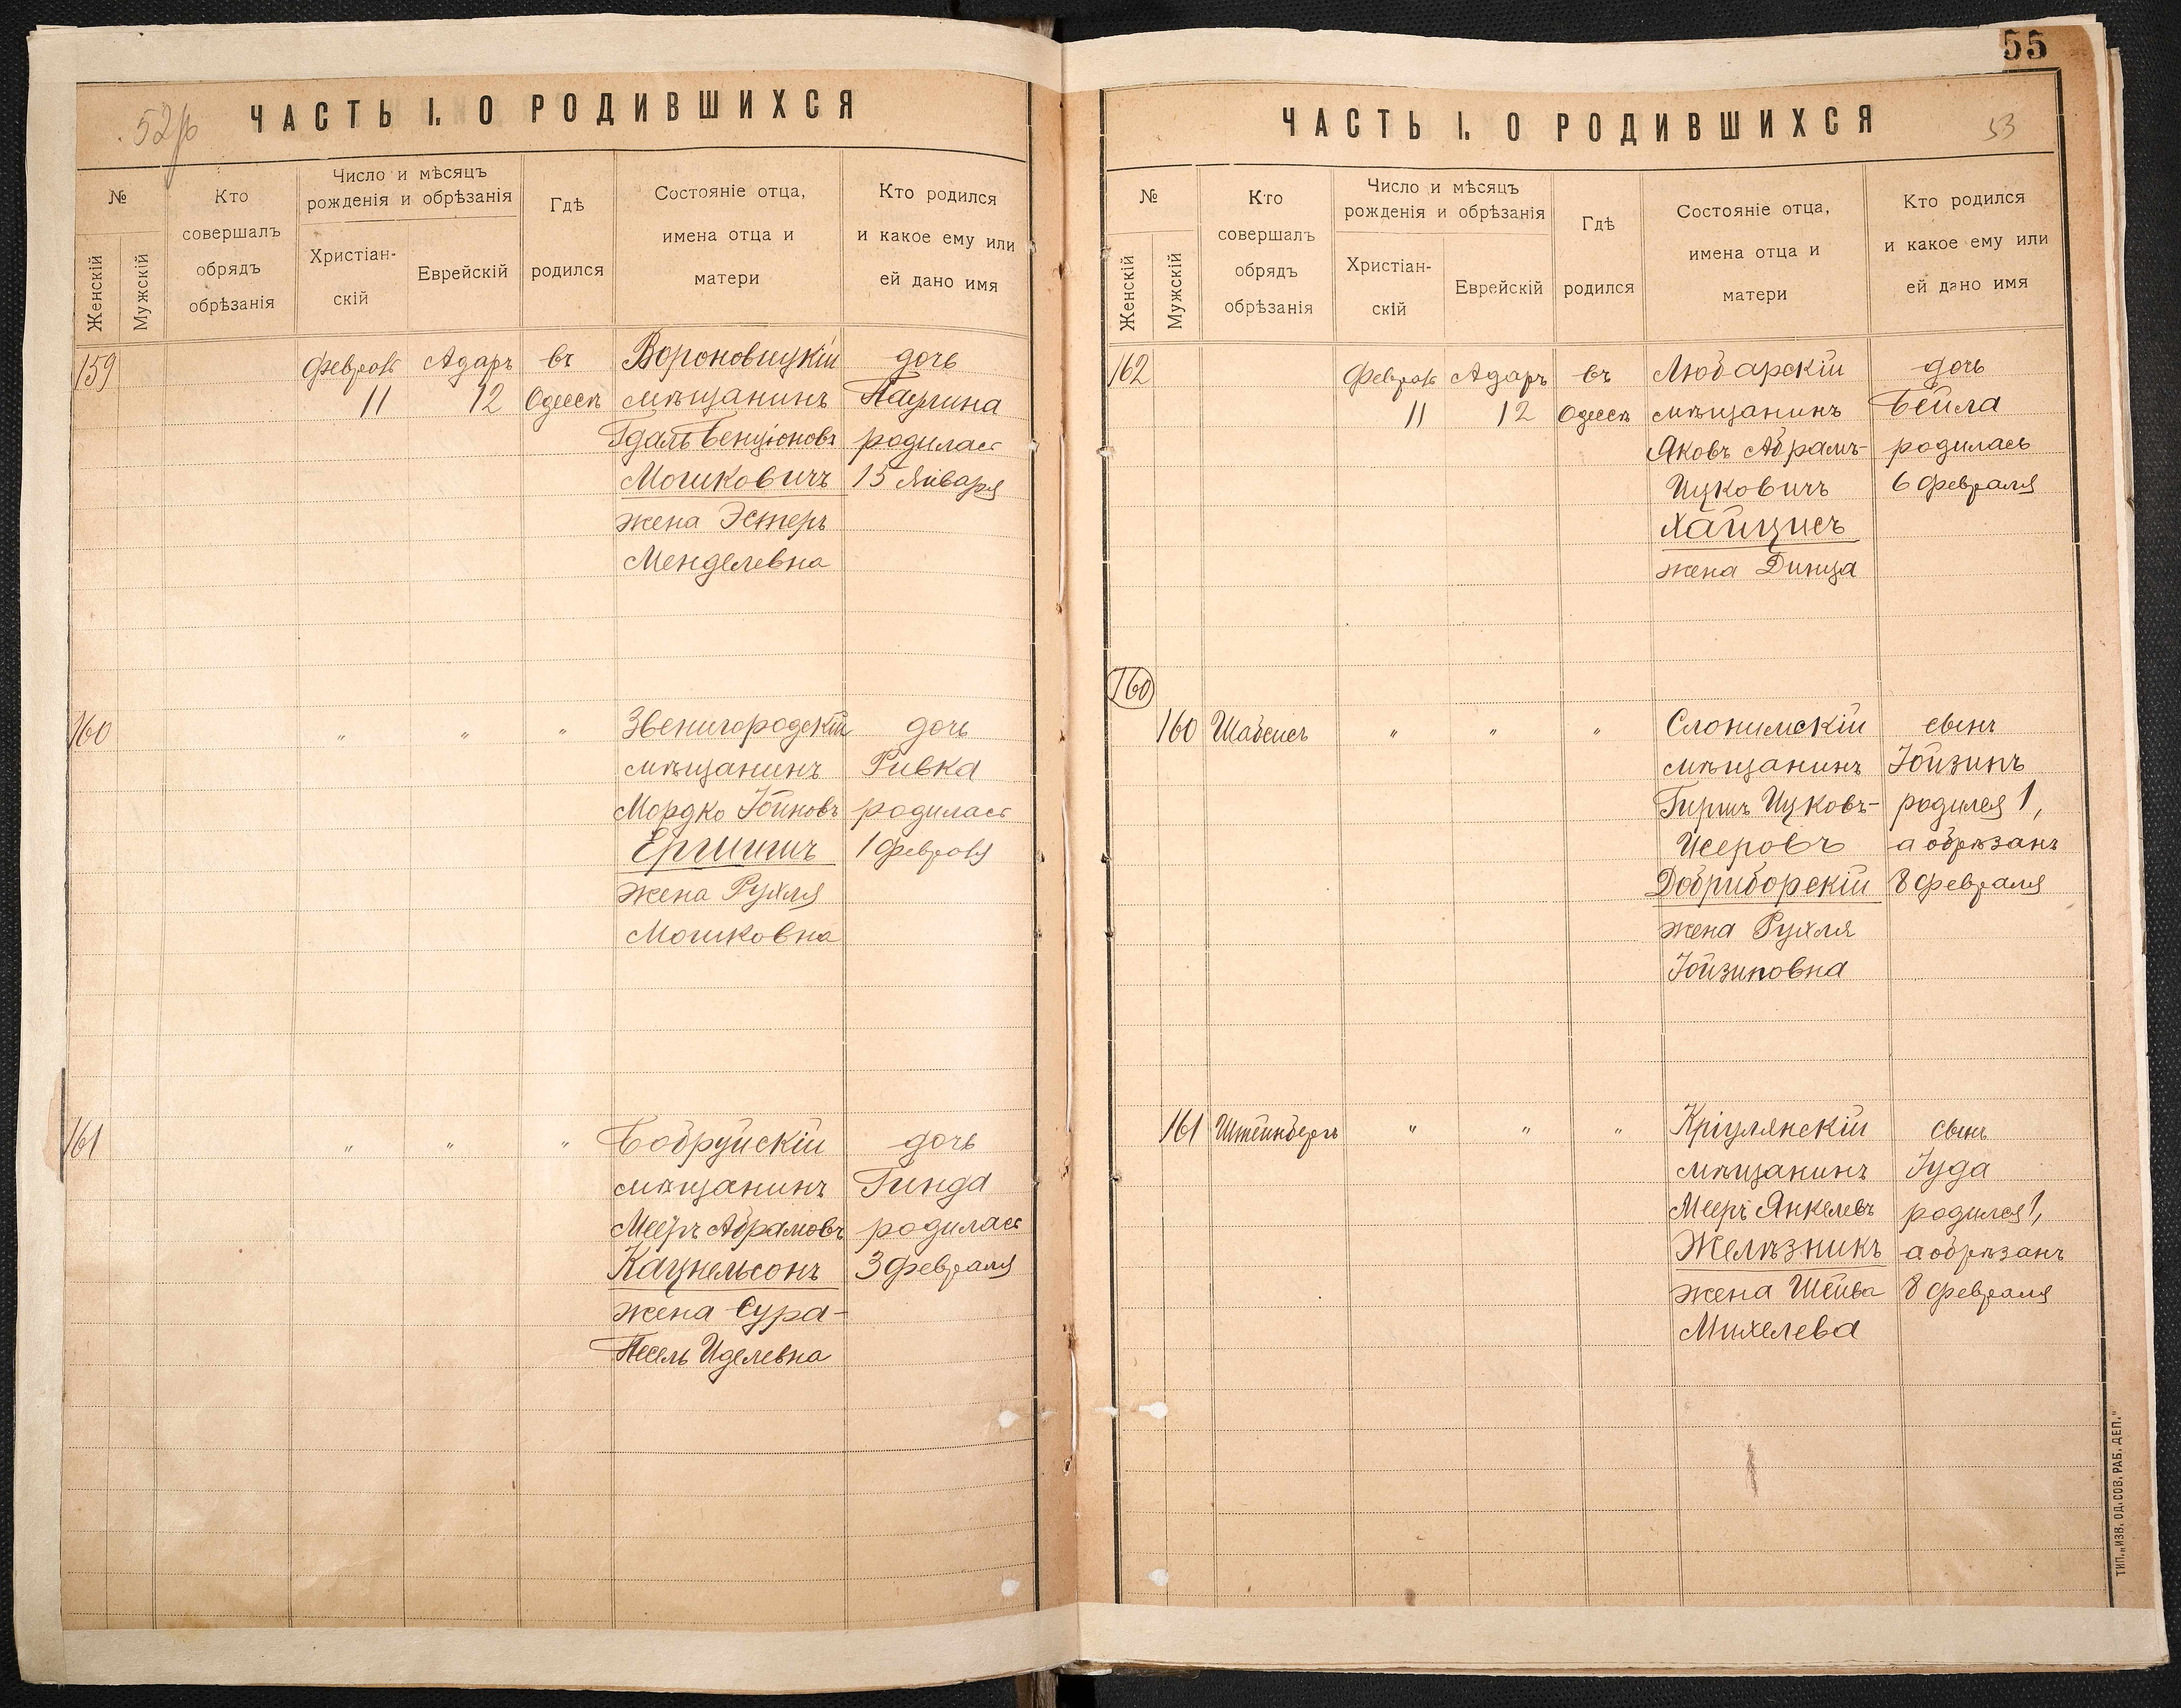 55
52 р
ЧАСТЬ I. О РОДИВШИХСЯ
№
Женскій
Мужскій
Кто
совершалъ
обрядъ
обрѣзанія
Число и мѣсяцъ
рожденія и обрѣзанія
Христіан-
скій
Еврейскій
Гдѣ
родился
Состояніе отца,
имена отца и
матери
Кто родился
и какое ему или
ей дано имя
159 Февраль Адаръ въ Вороновицкій дочь
11 12 Одессѣ мѣщанинъ Паулина
Гдаль Бенціоновъ родилась
Мошковичъ 15 Января
жена Эстеръ
Менделевна
160 " " " Звенигородскій дочь
мѣщанинъ Ривка
Мордко Іойновъ родилась
Ергишъ 1 Февраля
жена Рухля
Мошковна
161 " " " Бобруйскій дочь
мѣщанинъ Гинда
Мееръ Абрамовъ родилась
Кацнельсонъ 3 Февраля
жена Сура-
Песель Иделевна
ЧАСТЬ I. О РОДИВШИХСЯ
53
№
Женскій
Мужскій
Кто
совершалъ
обрядъ
обрѣзанія
Число и мѣсяцъ
рожденія и обрѣзанія
Христіан-
скій
Еврейскій
Гдѣ
родился
Состояніе отца,
имена отца и
матери
Кто родился
и какое ему или
ей дано имя
162 Февраль Адаръ въ Любарскій дочь
11 12 Одессѣ мѣщанинъ Бейла
Яковъ Абрамъ- родилась
Ицковичъ 6 Февраля
Хайцисъ
жена Динца
160
160 Шабсисъ " " " Слонимскій сынъ
мѣщанинъ Іойзинъ
Гиршъ Ицковъ- родился 1,
Исеровъ а обрѣзанъ
Добриборскій 8 Февраля
жена Рухля
Іойзиповна
161 Штейнбергъ " " " Кріулянскій сынъ
мѣщанинъ Іуда
Мееръ Янкелевъ родился 1,
Желѣзникъ а обрѣзанъ
жена Шейва 8 Февраля
Михелева
ТИП. „ИЗВ. ОД. СОВ. РАБ. ДЕП."